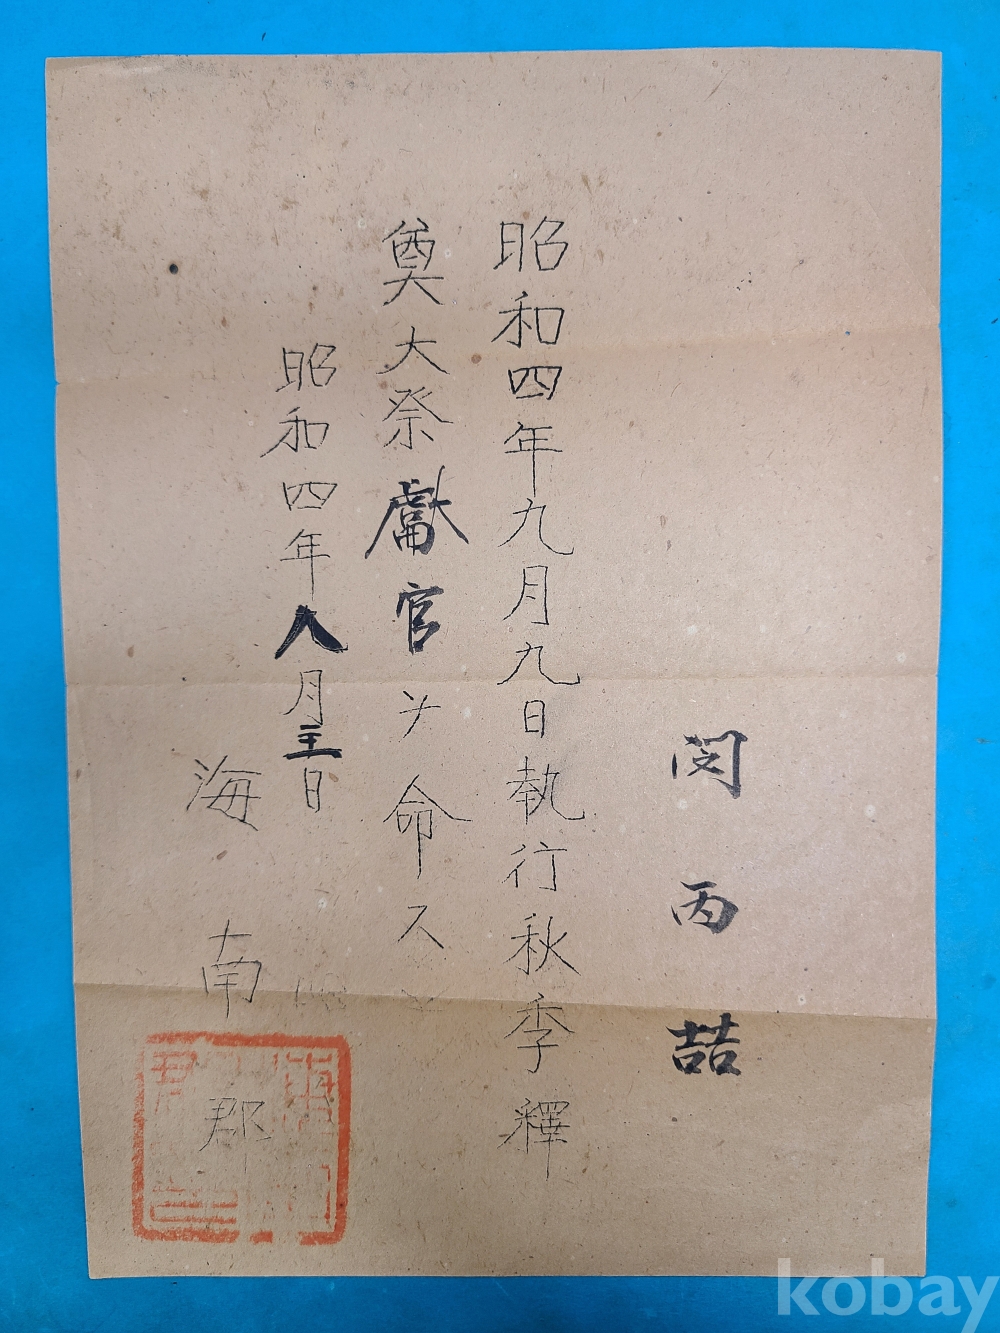 閔丙喆
昭和四年九月九日執行秋季釋
奠大祭獻官ヲ命ス
昭和四年八月 日
海南郡
kobay